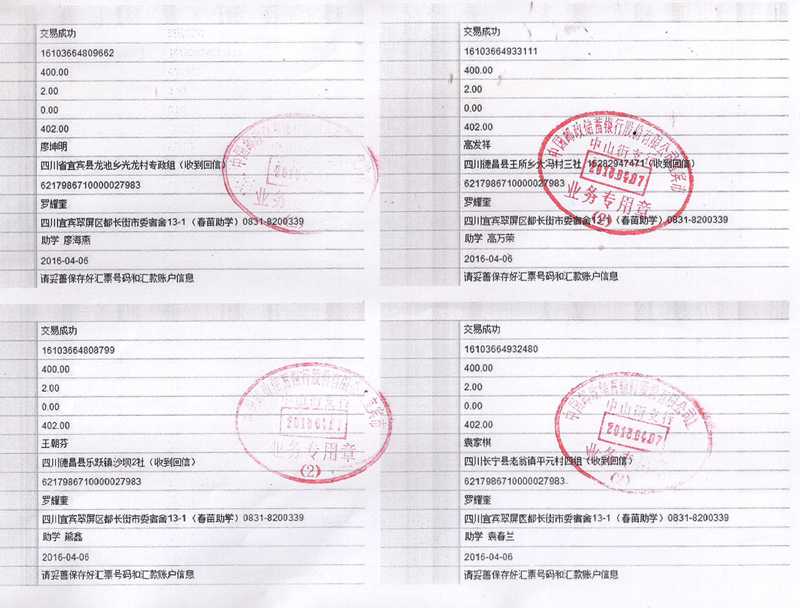 交易成功
16103664809662
400.00
2.00
0.00
402.00
廖坤明
四川省宜宾县龙池乡光龙村专政组（收到回信）
6217986710000027983
罗耀奎
四川宜宾翠屏区都长街市委宿舍13-1（春苗助学）0831-8200339
助学 廖海燕
2016-04-06
请妥善保存好汇票号码和汇款账户信息
业务
交易成功
16103664933111
400.00
2.00
0.00
402.00
高发祥
四川德昌县王所乡大冯村三社 15282947471（收到回信）
6217986710000027983
罗耀奎
四川宜宾翠屏区都长街市委宿舍13-1（春苗助学）0831-8200339
助学 高万荣
2016-04-06
请妥善保存好汇票号码和汇款账户信息
中国邮政储蓄银行股份有限公司
中山街支行
2016.04.07
业务专用章
(2)
交易成功
16103664808799
400.00
2.00
0.00
402.00
王朝芬
四川德昌县乐跃镇沙坝2社（收到回信）
6217986710000027983
罗耀奎
四川宜宾翠屏区都长街市委宿舍13-1（春苗助学）0831-8200339
助学 熊鑫
2016-04-06
请妥善保存好汇票号码和汇款账户信息
中山街支行
业务专用章
(2)
交易成功
16103664932480
400.00
2.00
0.00
402.00
袁家棋
四川长宁县老翁镇平元村四组（收到回信）
6217986710000027983
罗耀奎
四川宜宾翠屏区都长街市委宿舍13-1（春苗助学）0831-8200339
助学 袁春兰
2016-04-06
请妥善保存好汇票号码和汇款账户信息
中山街支行
2016.04.07
业务专用章
(2)